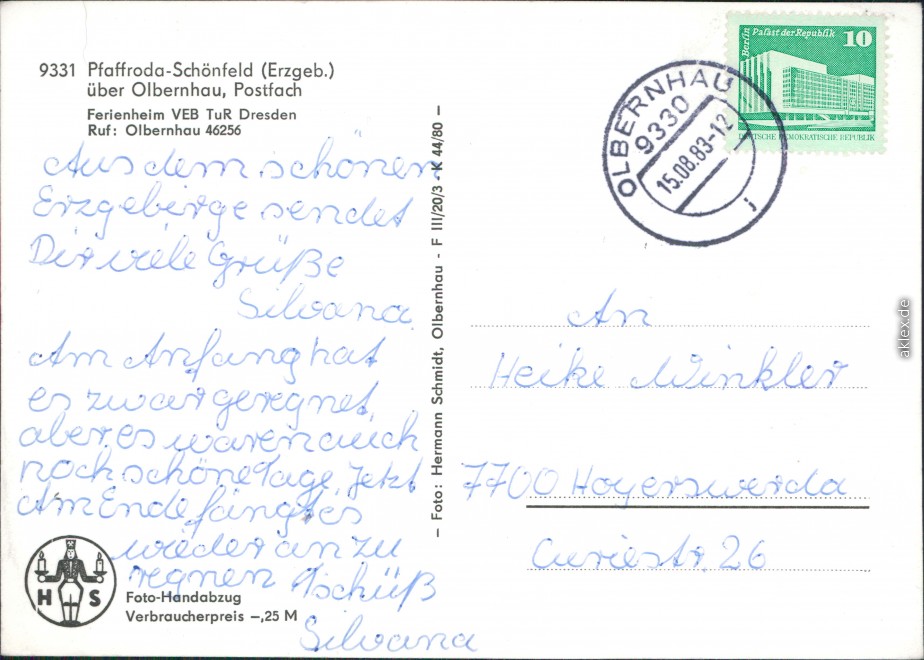 9331 Pfaffroda-Schönfeld (Erzgeb.)
über Olbernhau, Postfach
Ferienheim VEB TuR Dresden
Ruf: Olbernhau 46256
Aus dem schönen
Erzgebirge sendet
Dir viele Grüße
Silvana
Am Anfang hat
es zwar geregnet,
aber es waren auch
noch schöne Tage. Jetzt
Am Ende fängt es
wieder an zu
regnen Tschüß
Silvana
H S
Foto-Handabzug
Verbraucherpreis –,25 M
– Foto: Hermann Schmidt, Olbernhau - F III/20/3 K 44/80 –
OLBERNHAU
9330
15.08.83-12
j
Berlin Palast der Republik 10
DEUTSCHE DEMOKRATISCHE REPUBLIK
An
Heike Winkler
7700 Hoyerswerda
Curiestr. 26
aklex.de